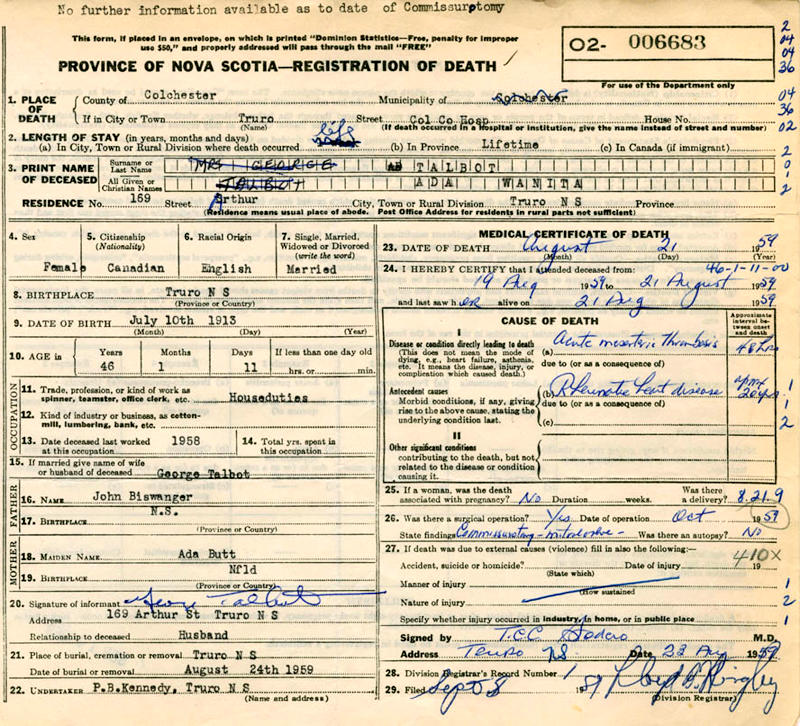 No further information available as to date of Commissurotomy
This form, if placed in an envelope, on which is printed "Dominion Statistics—Free, penalty for improper
use $50," and properly addressed will pass through the mail "FREE"
PROVINCE OF NOVA SCOTIA—REGISTRATION OF DEATH
02- 006683
For use of the Department only
2
04
04
36
04
36
02
2
0
1
2
1. PLACE OF DEATH
County of Colchester Municipality of Colchester
If in City or Town Truro Street Col Co Hosp House No.
(Name) (If death occurred in a hospital or institution, give the name instead of street and number)
2. LENGTH OF STAY (in years, months and days)
(a) In City, Town or Rural Division where death occurred life (b) In Province Lifetime (c) In Canada (if immigrant)
3. PRINT NAME OF DECEASED
Surname or Last Name MRS GEORGE TALBOT
All Given or Christian Names TALBOT ADA WANITA
RESIDENCE No. 169 Street Arthur City, Town or Rural Division Truro N S Province
(Residence means usual place of abode. Post Office Address for residents in rural parts not sufficient)
4. Sex
Female
5. Citizenship (Nationality)
Canadian
6. Racial Origin
English
7. Single, Married, Widowed or Divorced (write the word)
Married
8. BIRTHPLACE Truro N S
(Province or Country)
9. DATE OF BIRTH July 10th 1913
(Month) (Day) (Year)
10. AGE in Years Months Days If less than one day old
46 1 11 hrs. or min.
OCCUPATION
11. Trade, profession, or kind of work as spinner, teamster, office clerk, etc. Houseduties
12. Kind of industry or business, as cotton-mill, lumbering, bank, etc.
13. Date deceased last worked at this occupation 1958
14. Total yrs. spent in this occupation
15. If married give name of wife or husband of deceased George Talbot
FATHER
16. NAME John Biswanger
17. BIRTHPLACE N.S.
(Province or Country)
MOTHER
18. MAIDEN NAME Ada Butt
19. BIRTHPLACE Nfld
(Province or Country)
20. Signature of informant George Talbot
Address 169 Arthur St Truro N S
Relationship to deceased Husband
21. Place of burial, cremation or removal Truro N S
Date of burial or removal August 24th 1959
22. UNDERTAKER P.B.Kennedy, Truro N S
(Name and address)
MEDICAL CERTIFICATE OF DEATH
23. DATE OF DEATH August 21 1959
(Month) (Day) (Year)
46-1-11-00
24. I HEREBY CERTIFY that I attended deceased from:
19 Aug 1959 to 21 August 1959
and last saw her alive on 21 Aug 1959
CAUSE OF DEATH
Approximate interval between onset and death
I
Disease or condition directly leading to death
(This does not mean the mode of dying, e.g., heart failure, asthenia, etc. It means the disease, injury, or complication which caused death.)
(a) Acute mesenteric thrombosis 48 hrs
due to (or as a consequence of)
Antecedent causes
Morbid conditions, if any, giving rise to the above cause, stating the underlying condition last.
(b) Rheumatic heart disease 20 yrs 1
due to (or as a consequence of) 1
(c) 2
II
Other significant conditions
contributing to the death, but not related to the disease or condition causing it.
25. If a woman, was the death associated with pregnancy? No Duration weeks. Was there a delivery? 8.21.9
26. Was there a surgical operation? Yes Date of operation Oct 1959
State findings Was there an autopsy? No
27. If death was due to external causes (violence) fill in also the following:— 410X
Accident, suicide or homicide? Date of injury 19
(State which)
Manner of injury 1
(How sustained)
Nature of injury 2
Specify whether injury occurred in industry, in home, or in public place 1
Signed by M.D.
Address Truro NS Date 23 Aug 1959
28. Division Registrar's Record Number
29. Filed Sept 8 1959
(Division Registrar)